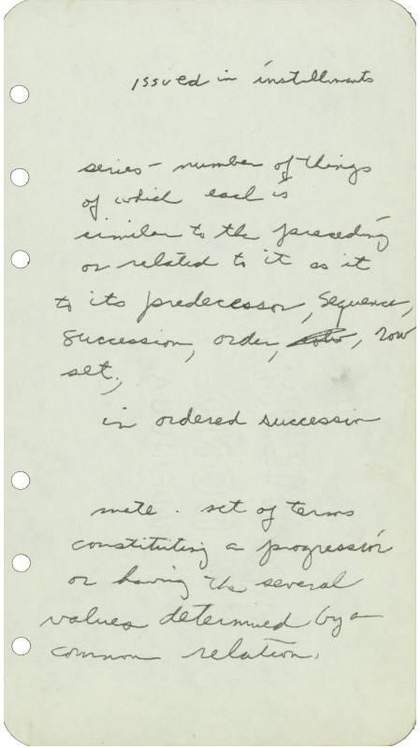 issued in installments
series – number of things
of which each is
similar to the preceding
or related to it as it
to its predecessor, sequence,
succession, order, row
set,
in ordered succession
mate. set of terms
constituting a progression
or having the several
values determined by a
common relation.